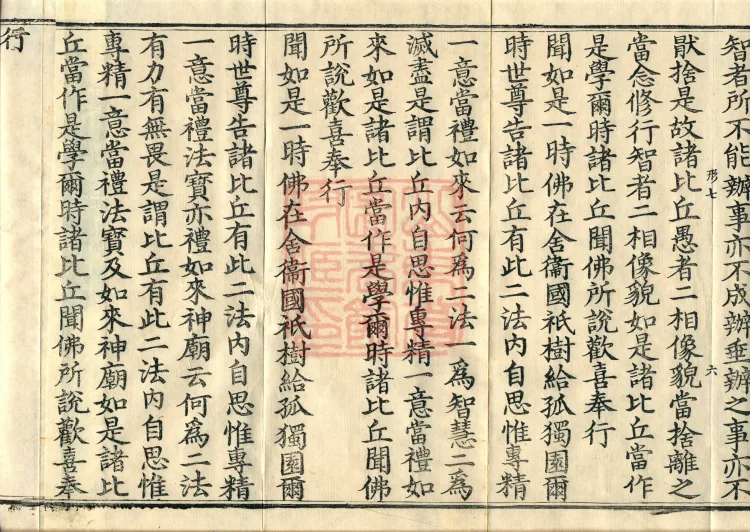 智者所不能辦事亦不成辦垂辦之事亦不
形七
六
猒捨是故諸比丘愚者二相像貌當捨離之
當念修行智者二相像貌如是諸比丘當作
是學爾時諸比丘聞佛所說歡喜奉行
聞如是一時佛在舍衛國祇樹給孤獨園爾
時世尊告諸比丘有此二法內自思惟專精
一意當禮如來云何為二法一為智慧二為
滅盡是謂比丘內自思惟專精一意當禮如
來如是諸比丘當作是學爾時諸比丘聞佛
所說歡喜奉行
聞如是一時佛在舍衛國祇樹給孤獨園爾
時世尊告諸比丘有此二法內自思惟專精
一意當禮法寶亦禮如來神廟云何為二法
有力有無畏是謂比丘有此二法內自思惟
專精一意當禮法寶及如來神廟如是諸比
丘當作是學爾時諸比丘聞佛所說歡喜奉
行